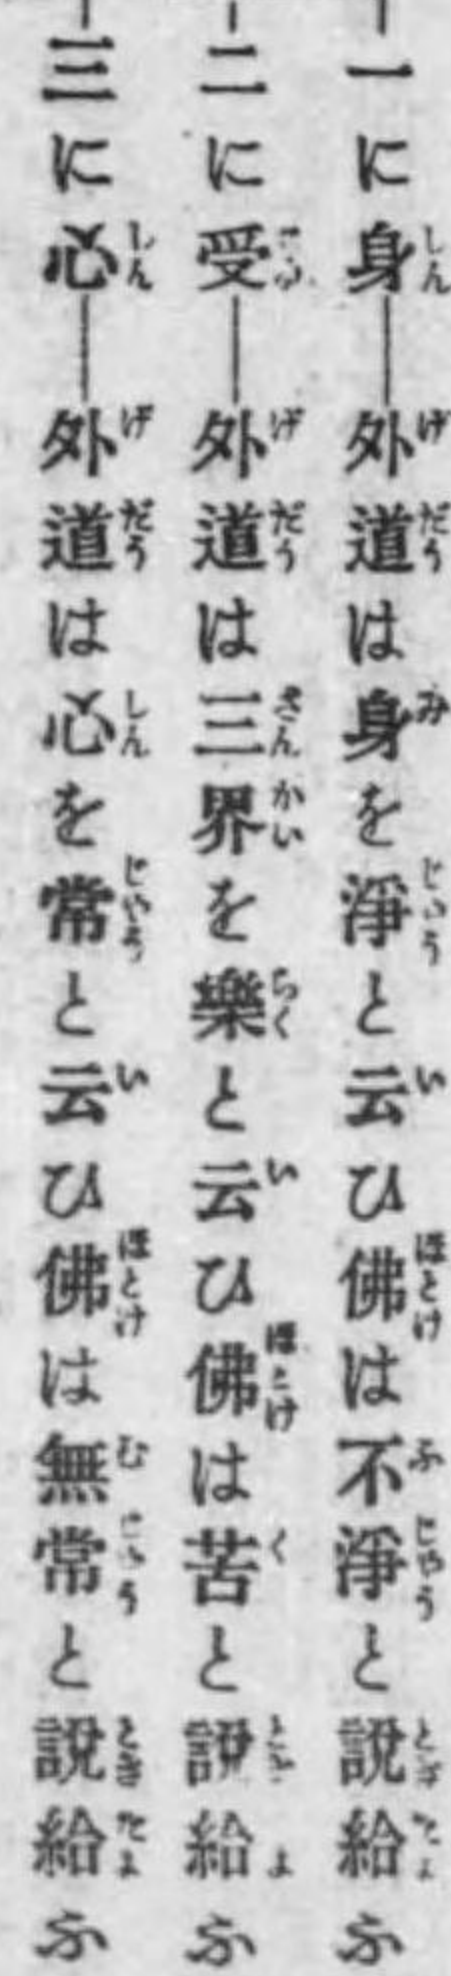 一に身―外道は身を淨と云ひ佛は不淨と說給ふ
二に受―外道は三界を樂と云ひ佛は苦と說給ふ
三に心―外道は心を常と云ひ佛は無常と說給ふ